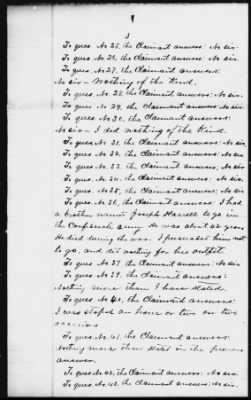 3
To ques. No 25, the Claimant answers: No sir.
To ques. No 26, the Claimant answers: No sir.
To ques. No 27, the Claimant answers:
No sir - Nothing of the Kind.
To ques. No. 28, the Claimant answers: No sir.
To ques. No 29, the Claimant answers: No sir.
To ques. No 30, the Claimant answers:
No sir - I did nothing of the Kind.
To ques. No 31, the Claimant answers: No sir.
To ques. No 32, the Claimant answers: No sir.
To ques. No 33, the Claimant answers, No sir.
To ques. No 34, the Claimant answers: No sir.
To ques. No 35, the Claimant answers; No sir
To ques. No 36, the Claimant answers: I had
a brother named Joseph to go in
the army. He was about 42 years
He died during the war. I him not
to go, and did nothing for his outfit.
To ques. No 37 the Claimant answers: No sir
To ques. No 39. the Claimant answers:
Nothing more than I have stated.
To ques. No 40, the Claimant answers:
I was stop'd an hour or two on two
occasions
To ques. No. 41, the Claimant answers:
Nothing more than stated in the former
answer.
To ques. No. 42, the Claimant answers: No sir.
To ques. No. the Claimant answers: No sir.